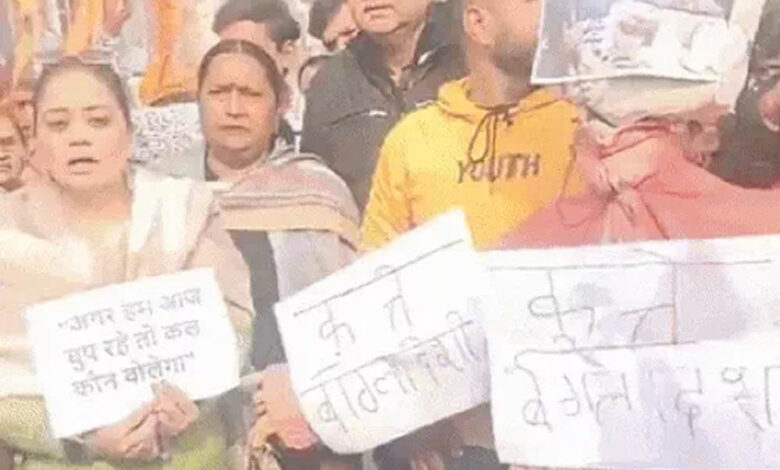 YOUTH
"अगर हम आज
चुप रहे तो कल
कौन बोलेगा"
कुत्ते
बांग्लादेशी
कुत्ते